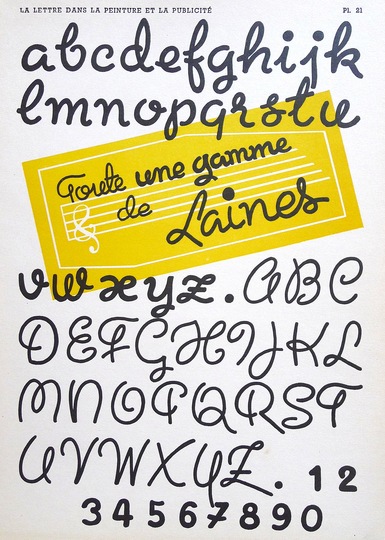 LA LETTRE DANS LA PEINTURE ET LA PUBLICITÉ
Pl. 21
abcdefghijk
lmnopqrstu
Toute une gamme
de Laines
vwxyz. ABC
DEFGHIJKL
MNOPQRST
UVWXYZ. 12
34567890